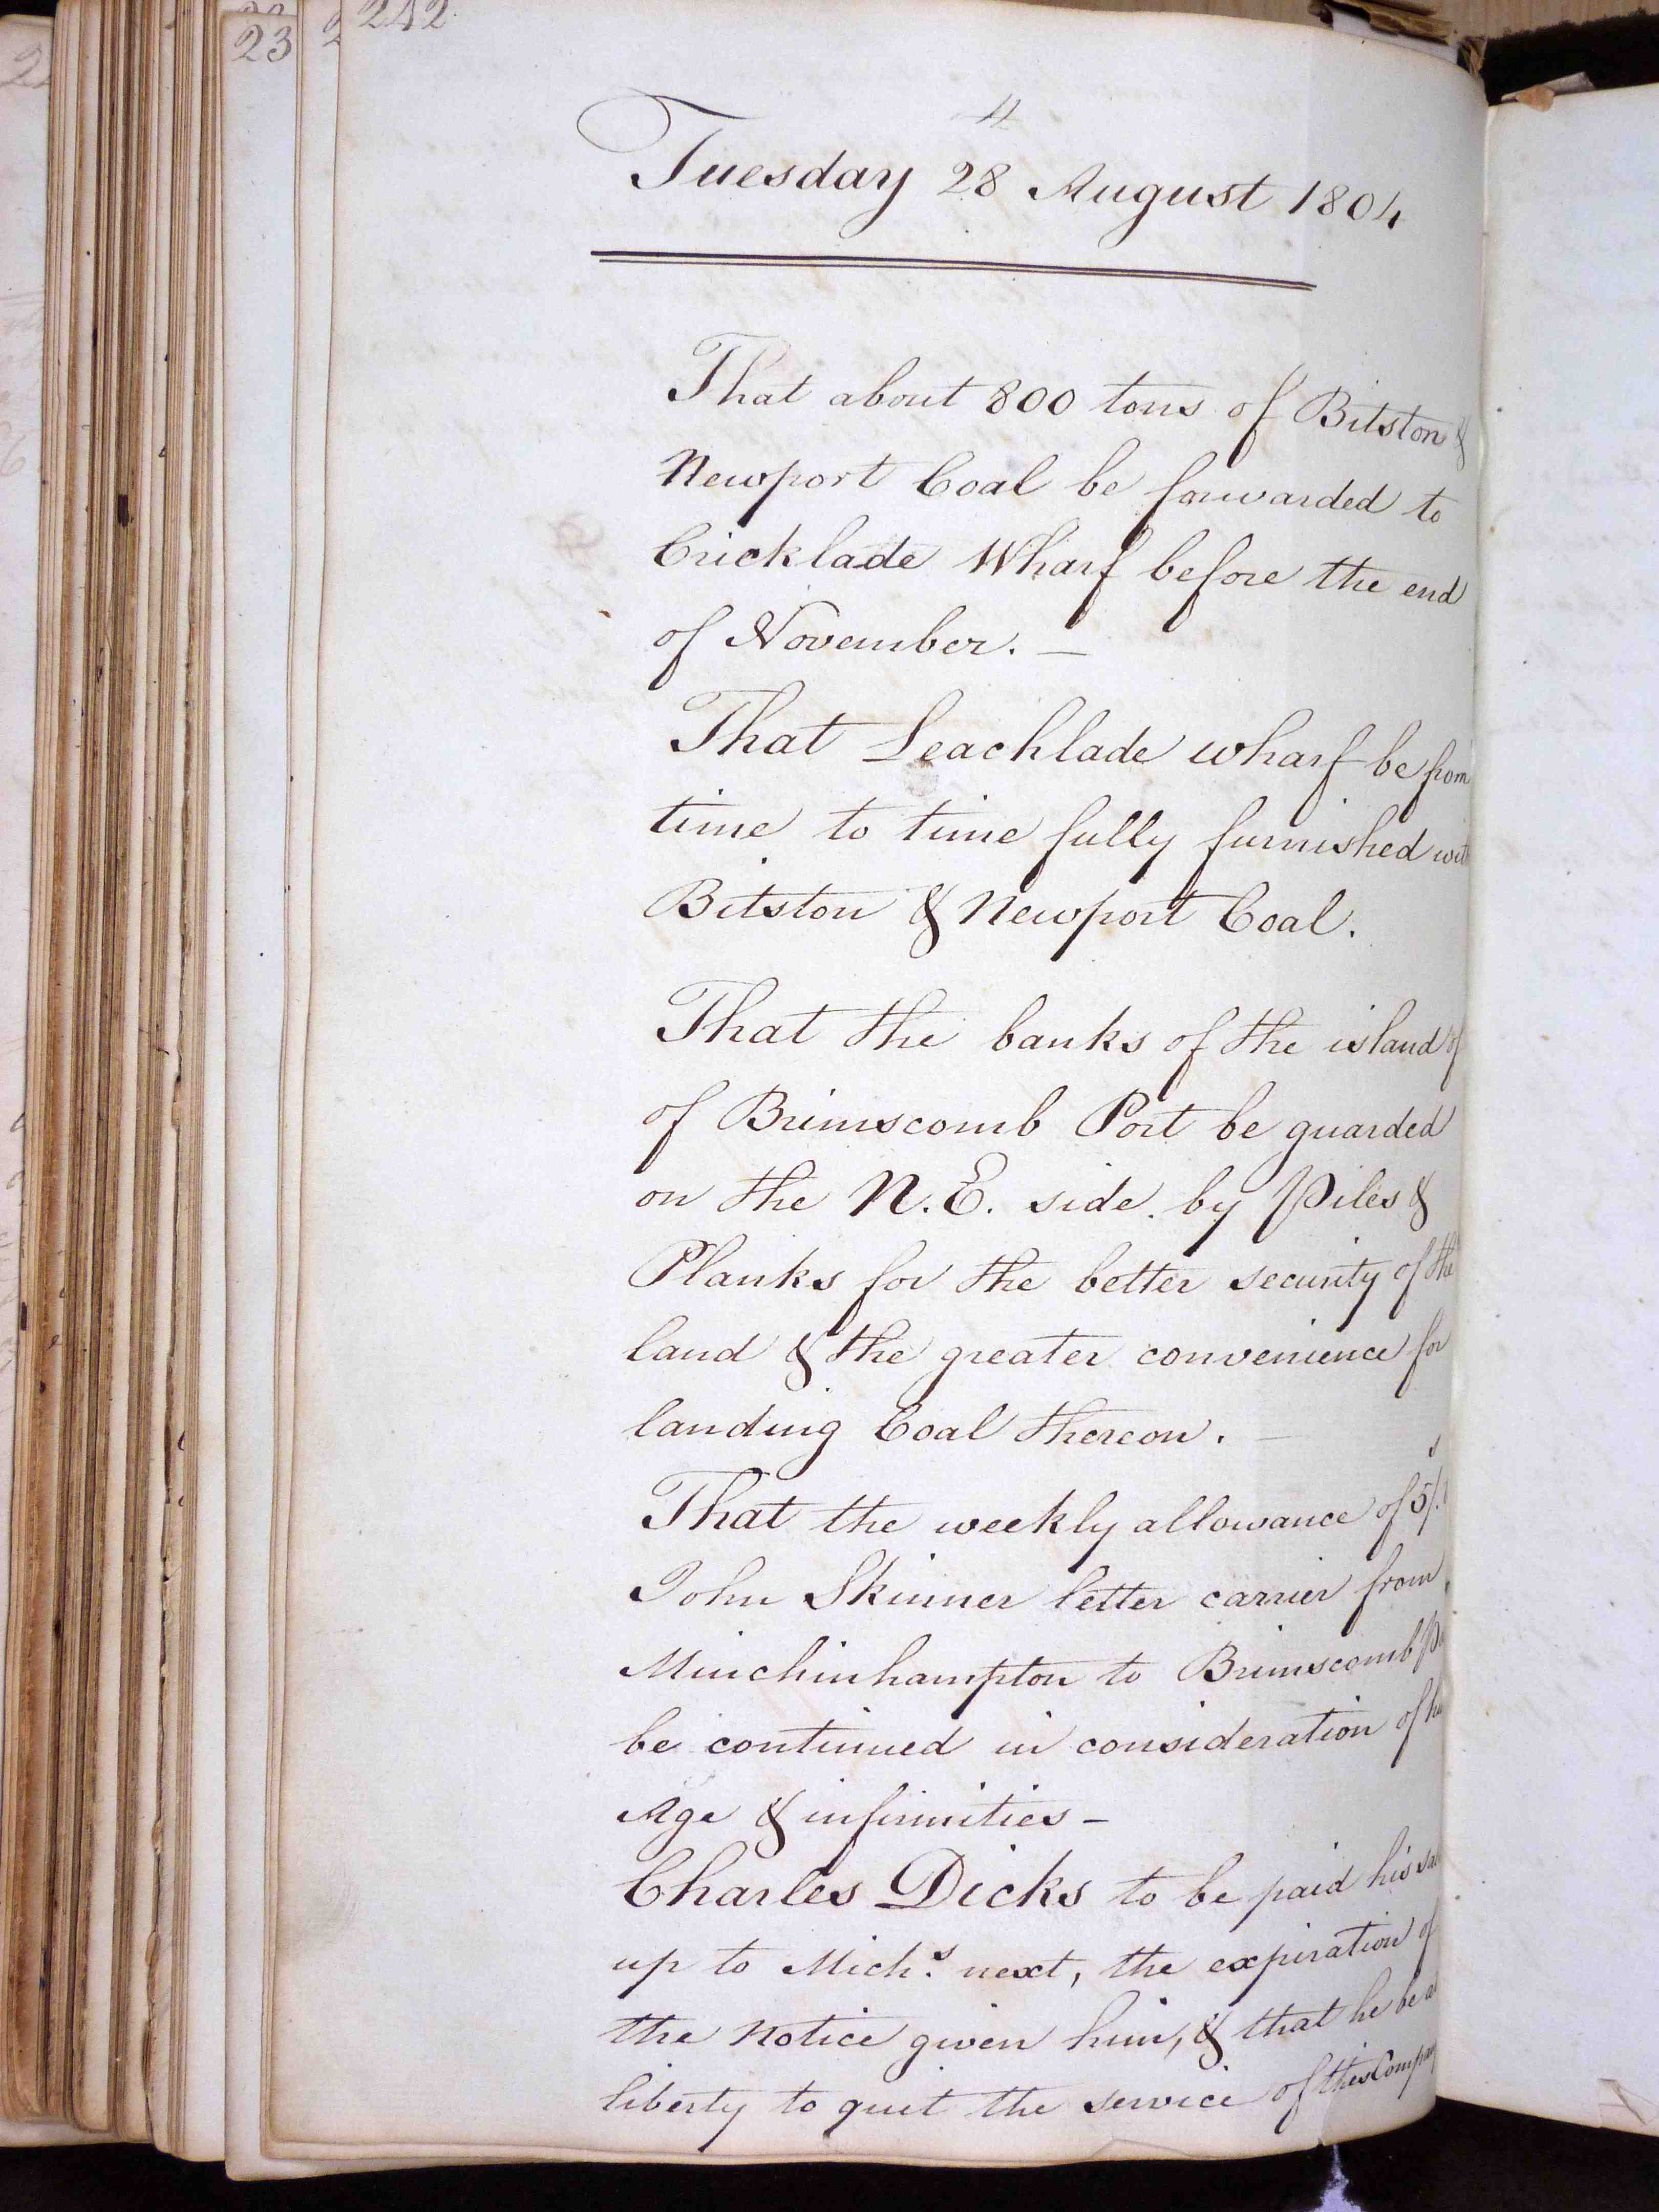 242
23
4
Tuesday 28 August 1804
That about 800 tons of Bitston &
Newport Coal be forwarded to
Cricklade Wharf before the end
of November. —
That Leachlade wharf be from
time to time fully furnished with
Bitston & Newport Coal.
That the banks of the island of
of Brimscomb Port be guarded
on the N.E. side by Piles &
Planks for the better security of the
land & the greater convenience for
landing Coal thereon. —
That the weekly allowance of 5/
John Skinner letter carrier from
Minchinhampton to Brimscomb
be continued in consideration of
Age & infirmities –
Charles Dicks to be paid his
up to Mich.s next, the expiration of
the notice given him, & that he be
liberty to quit the service of this Company